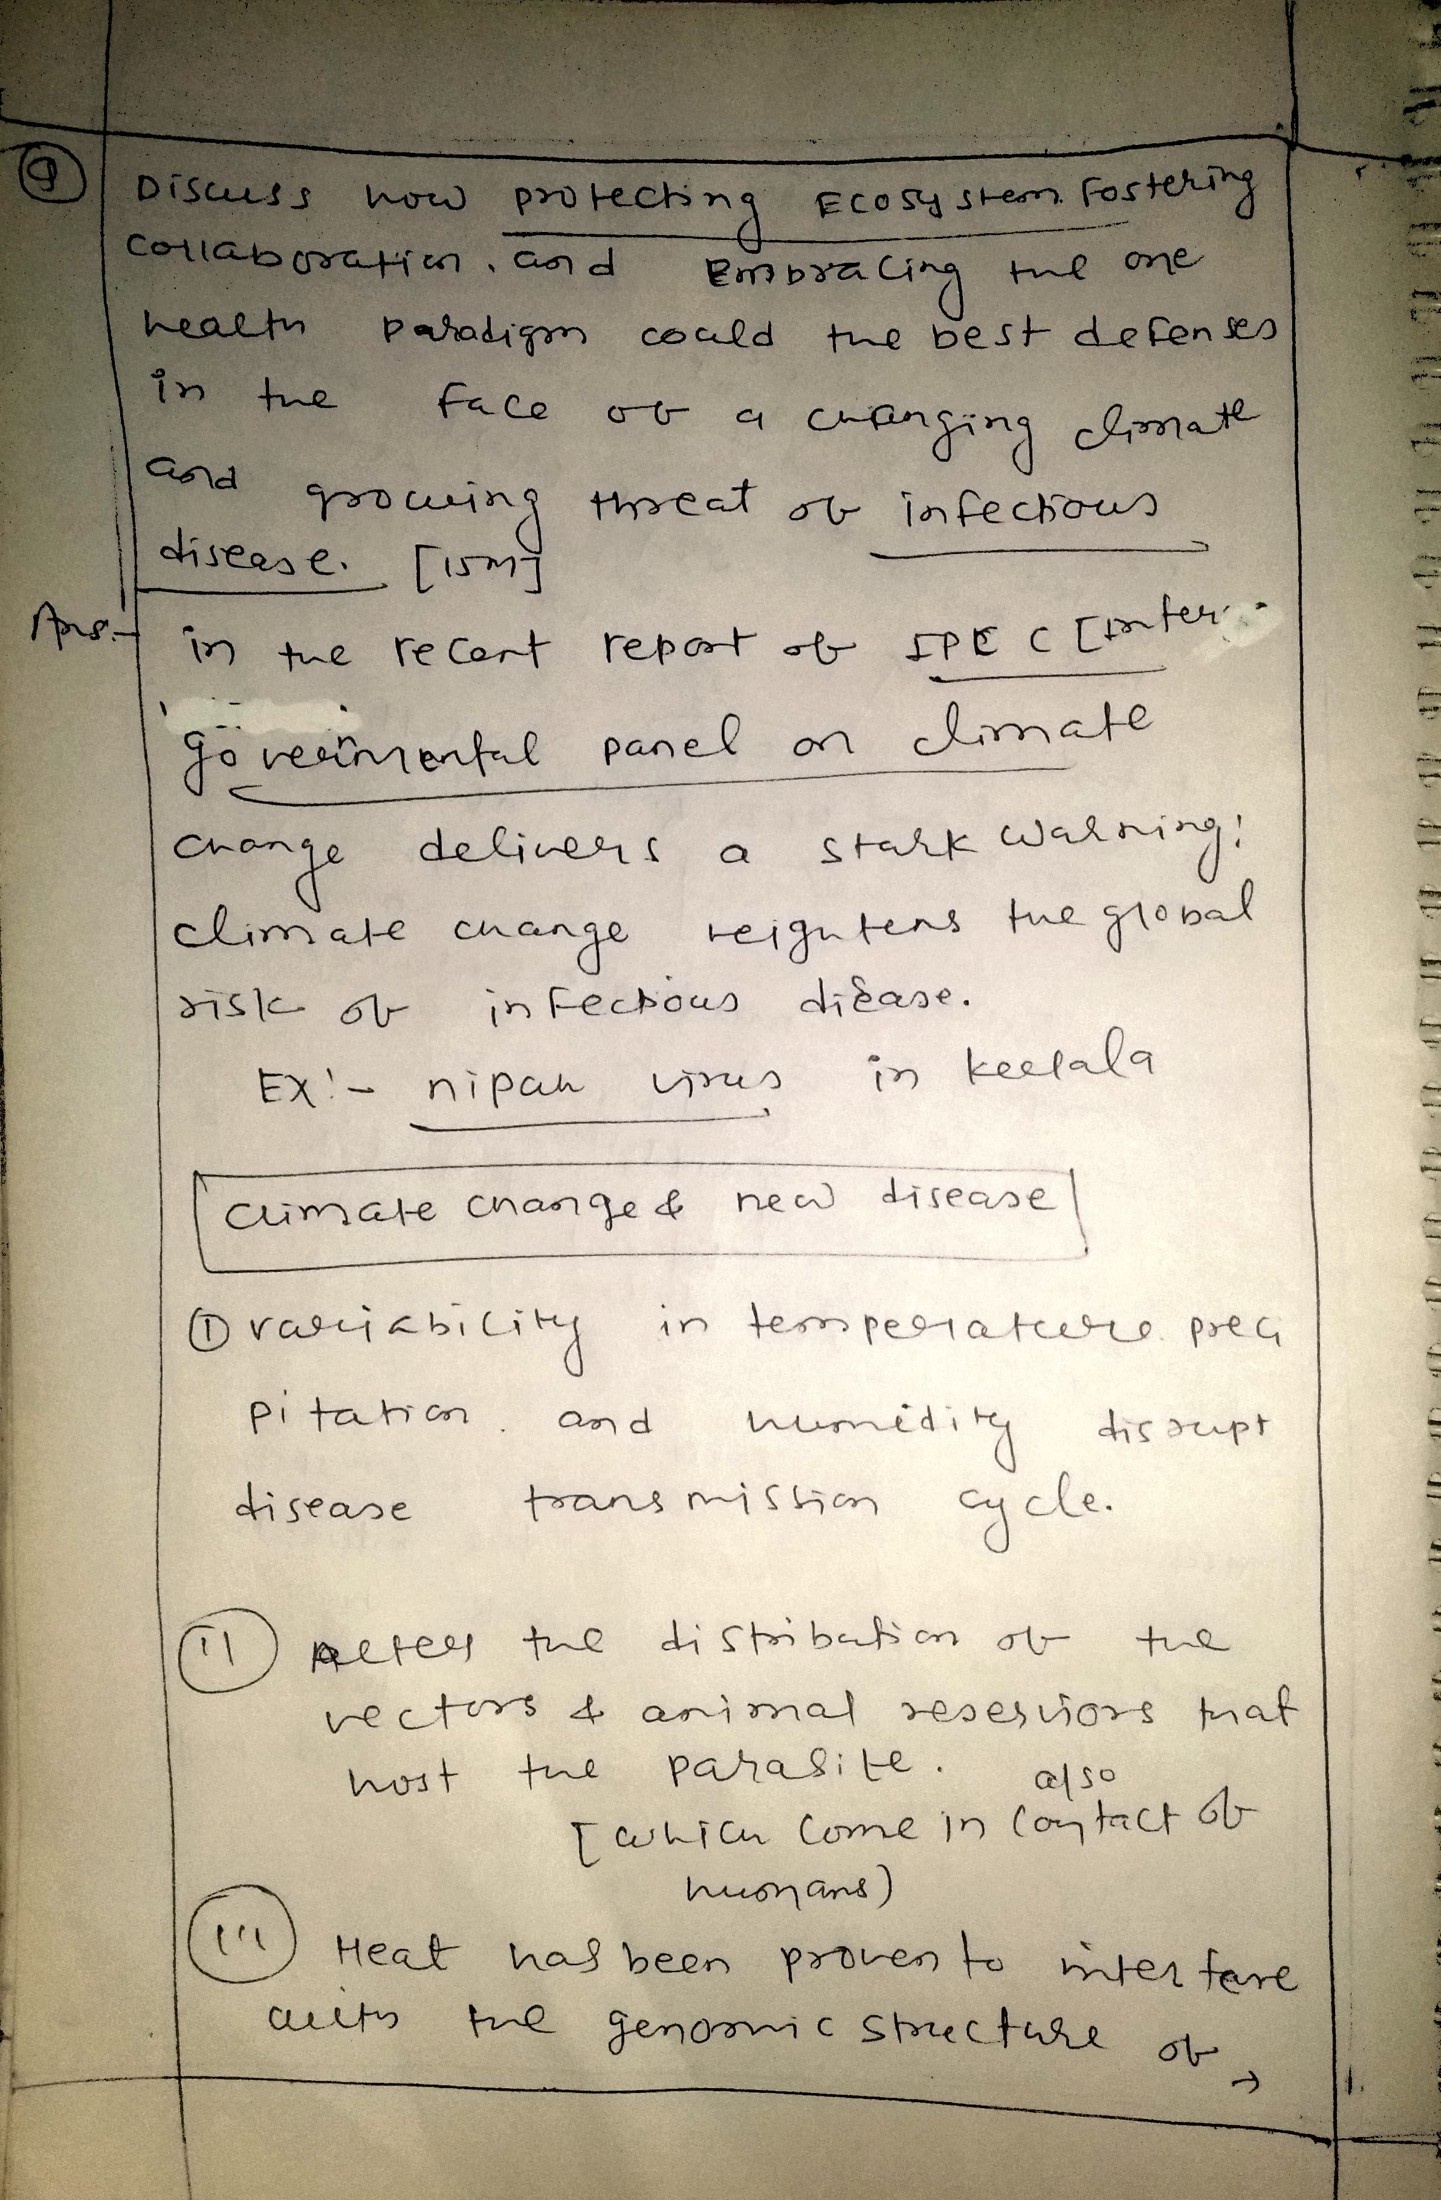 9
Discuss how protecting Ecosystem Fostering
collaboration, and Embracing the one
health paradigm could the best defenses
in the face of a changing climate
and growing threat of infectious
disease. [15m]
Ans:- in the recent report of IPCC [inter
governmental panel on climate
change delivers a stark warning:
climate change heightens the global
risk of infectious disease.
Ex:- nipah virus in keerala
climate change & new disease
① variability in temperature preci
pitation and humidity disrupt
disease transmission cycle.
ii Alter the distribution of the
vectors & animal reserviors that
host the parasite.
also
[which come in contact of
humans)
iii Heat has been proven to interfere
with the genomic structure of →